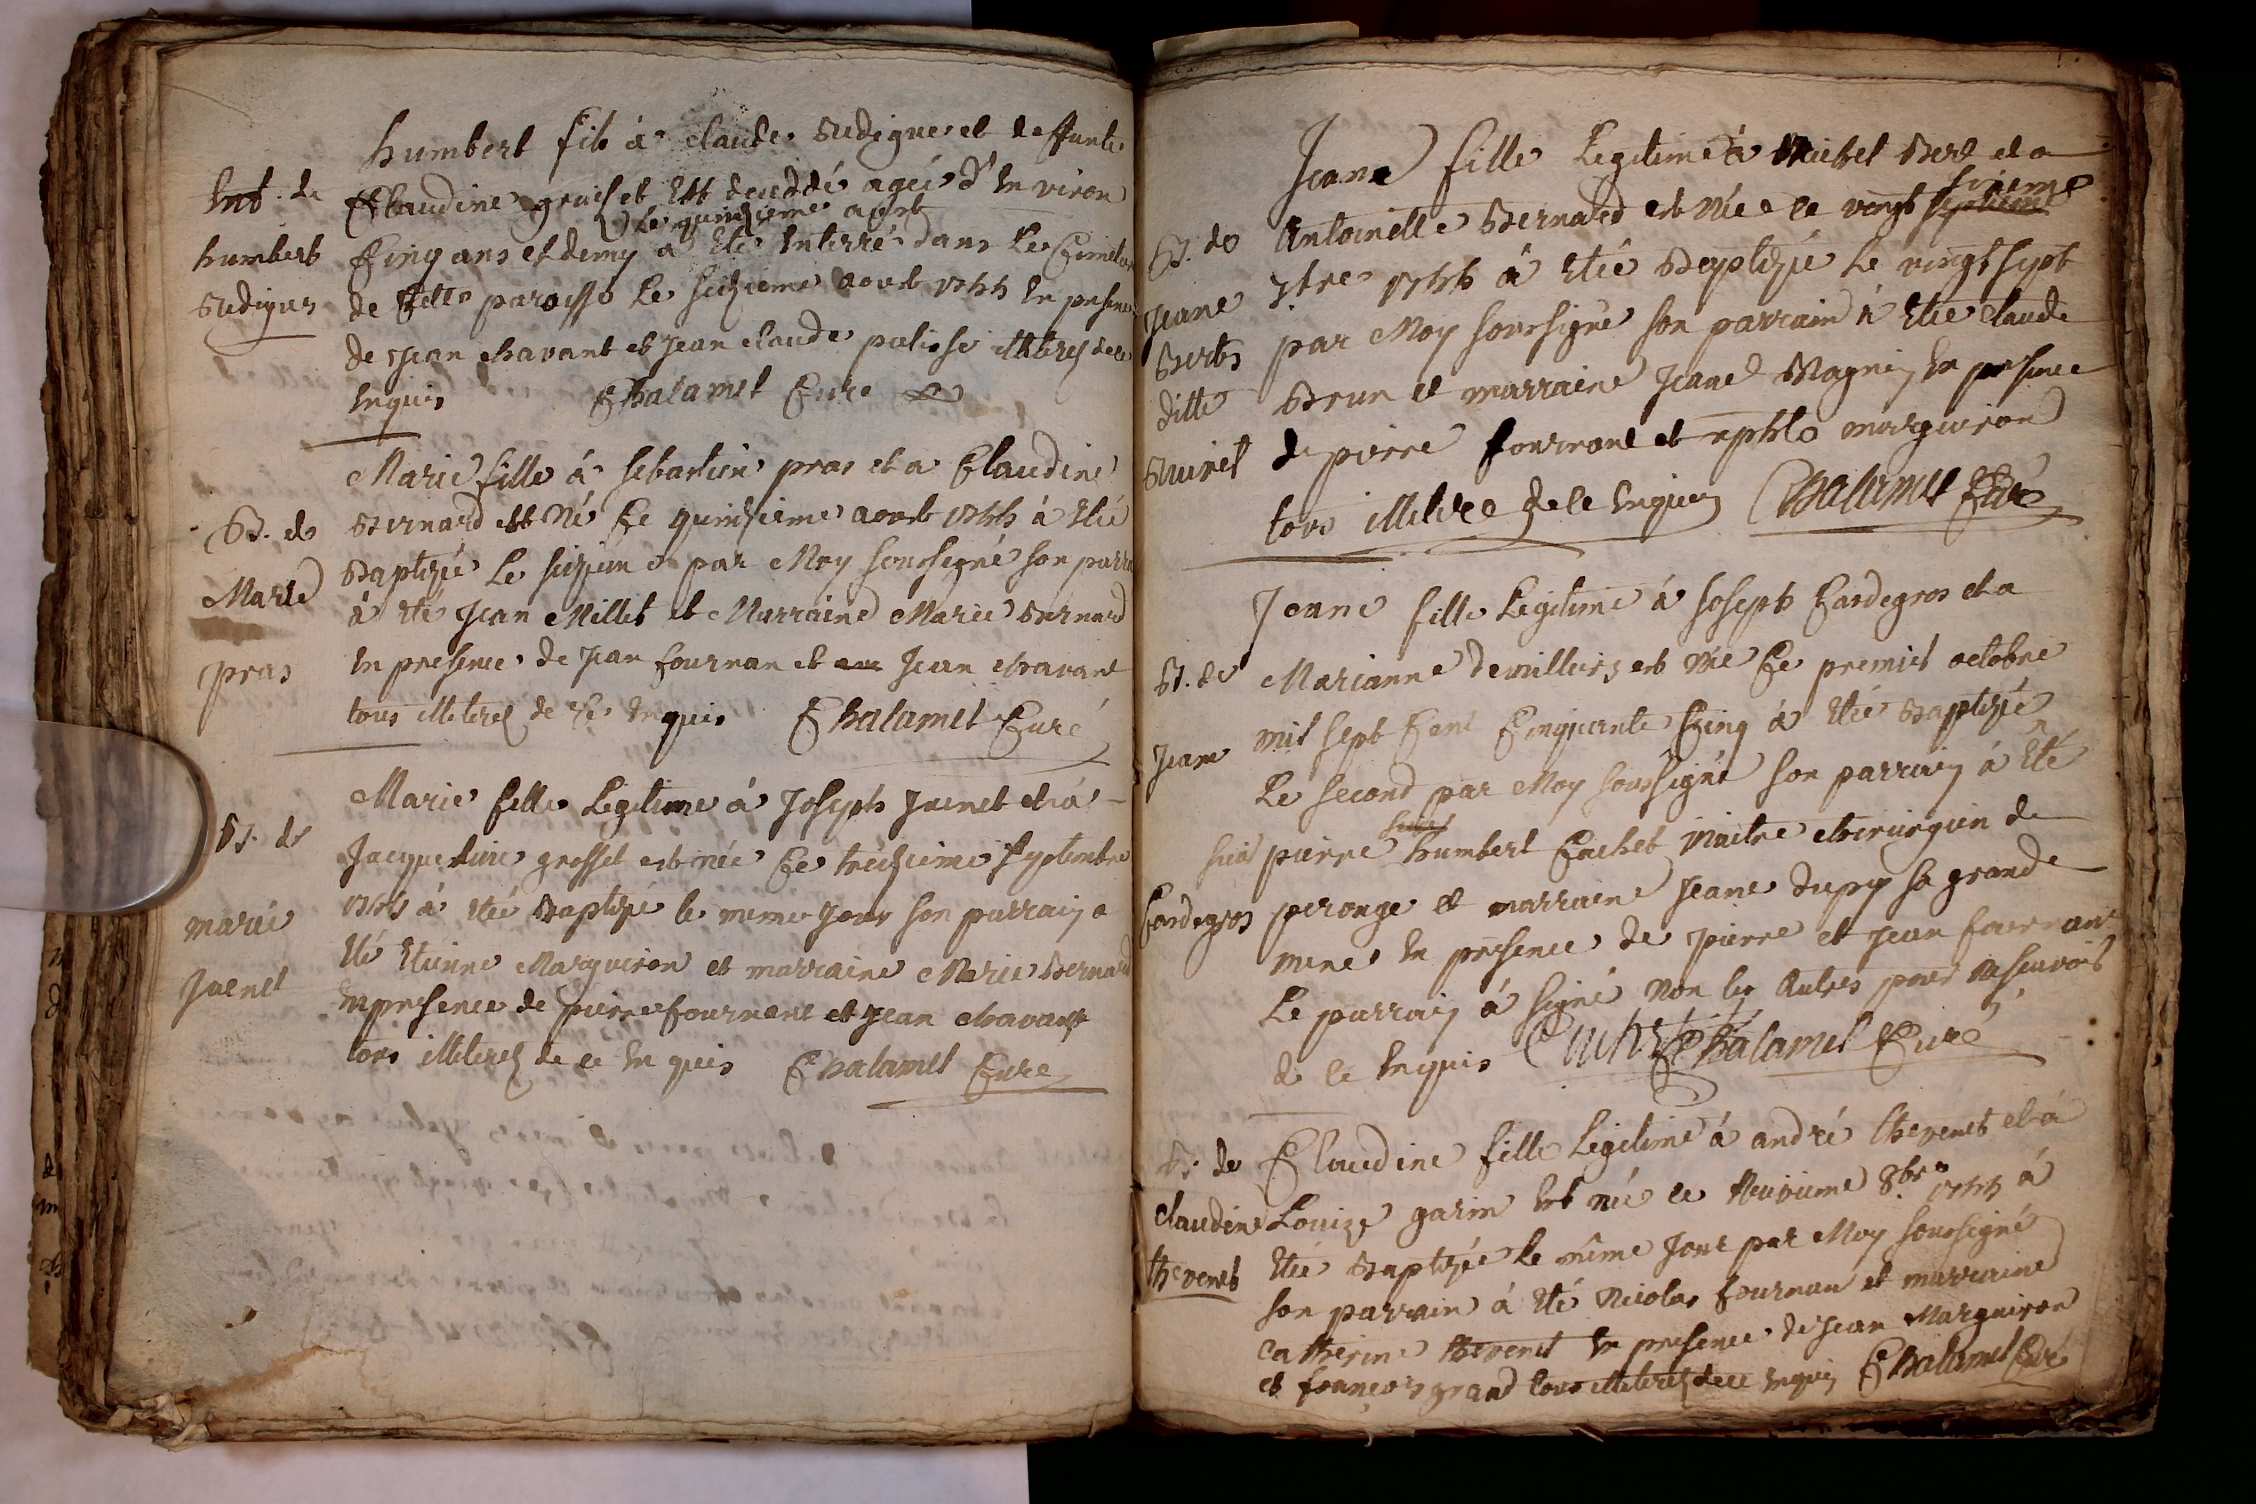 humbert fils à claude Budigue et deffunte
Ent. de
Claudine gruiset Est deceddé ageé d'Environ
le quinzieme aout
humbert
Cinq ans et demy à Eté Enterré dans Le Cimetie
Budigues
de Cette paroisse Le seizieme aoust 1755 En presence
de Jean chavant et Jean claude palisse illiterez de ce
Enquis Chalamel Curé
Marie fille à sebastien pras et a Claudine
B. de
Bernard est Né Ce quinzieme aoust 1755 à Etté
Baptizée Le seizieme par Moy soussigné son parra
Marie
à Eté Jean Millet et Marraine Marie Bernard
pras
En presence de Jean fournan et Jean chavant
tous illiterez de Ce Enquis Chalamel Curé
Marie fille Legitime à Joseph Juenet et à
B. de
Jacqueline grosset est née Ce treizieme septembre
1755 à Eté Baptizé le meme Jour son parrain a
marie
Eté Etienne Marguiron et marraine Marie Bernard
Juenet
En presence de pierre fournant et Jean chavant
tous illiterez de ce Enquis Chalamel Curé
Jeane fille Legitime à Michel Bert et a
sixieme
B. de
Antoinette Bernard est Née le vingt septieme
7bre 1755 à Etée Baptizée Le vingt sept
Jeane
par Moy soussigné son parrain à Etée claude
Berts
Brun et marraine Jeane Magnin En presence
ditte
de pierre fournant et marguiron
tous illiteré de ce Enquis Chalamel Curé
Jeane fille Legitime à Joseph Cardegros et a
B. de
Marianne demillieres est Née Ce premier octobre
mil sept Cent Cinquante Cinq à Etée Baptizée
Jeane
Le second par Moy soussigné son parrain à Eté
pierre humbert Cachet Maitre chirurgien de
Cardegros
perouge et marraine Jeane dupuy sa grande
mere En presence de pierre et Jean fournant
Le parrain à signé Non les Autres pour ne scavoir
de ce Enquis Cachet Chalamel Curé
B. de
Claudine fille Legitime à andré thevenet et à
claudine
Louize garin Est née le Neuvieme 8bre 1755 à
Etée Baptizée le même Jour par Moy soussigné
thevenet
son parrain à Eté Nicolas fournan et marraine
catherine thevenet En presence de Jean Marguiron
et françois grand tous illiterez de ce Enquis Chalamel Curé